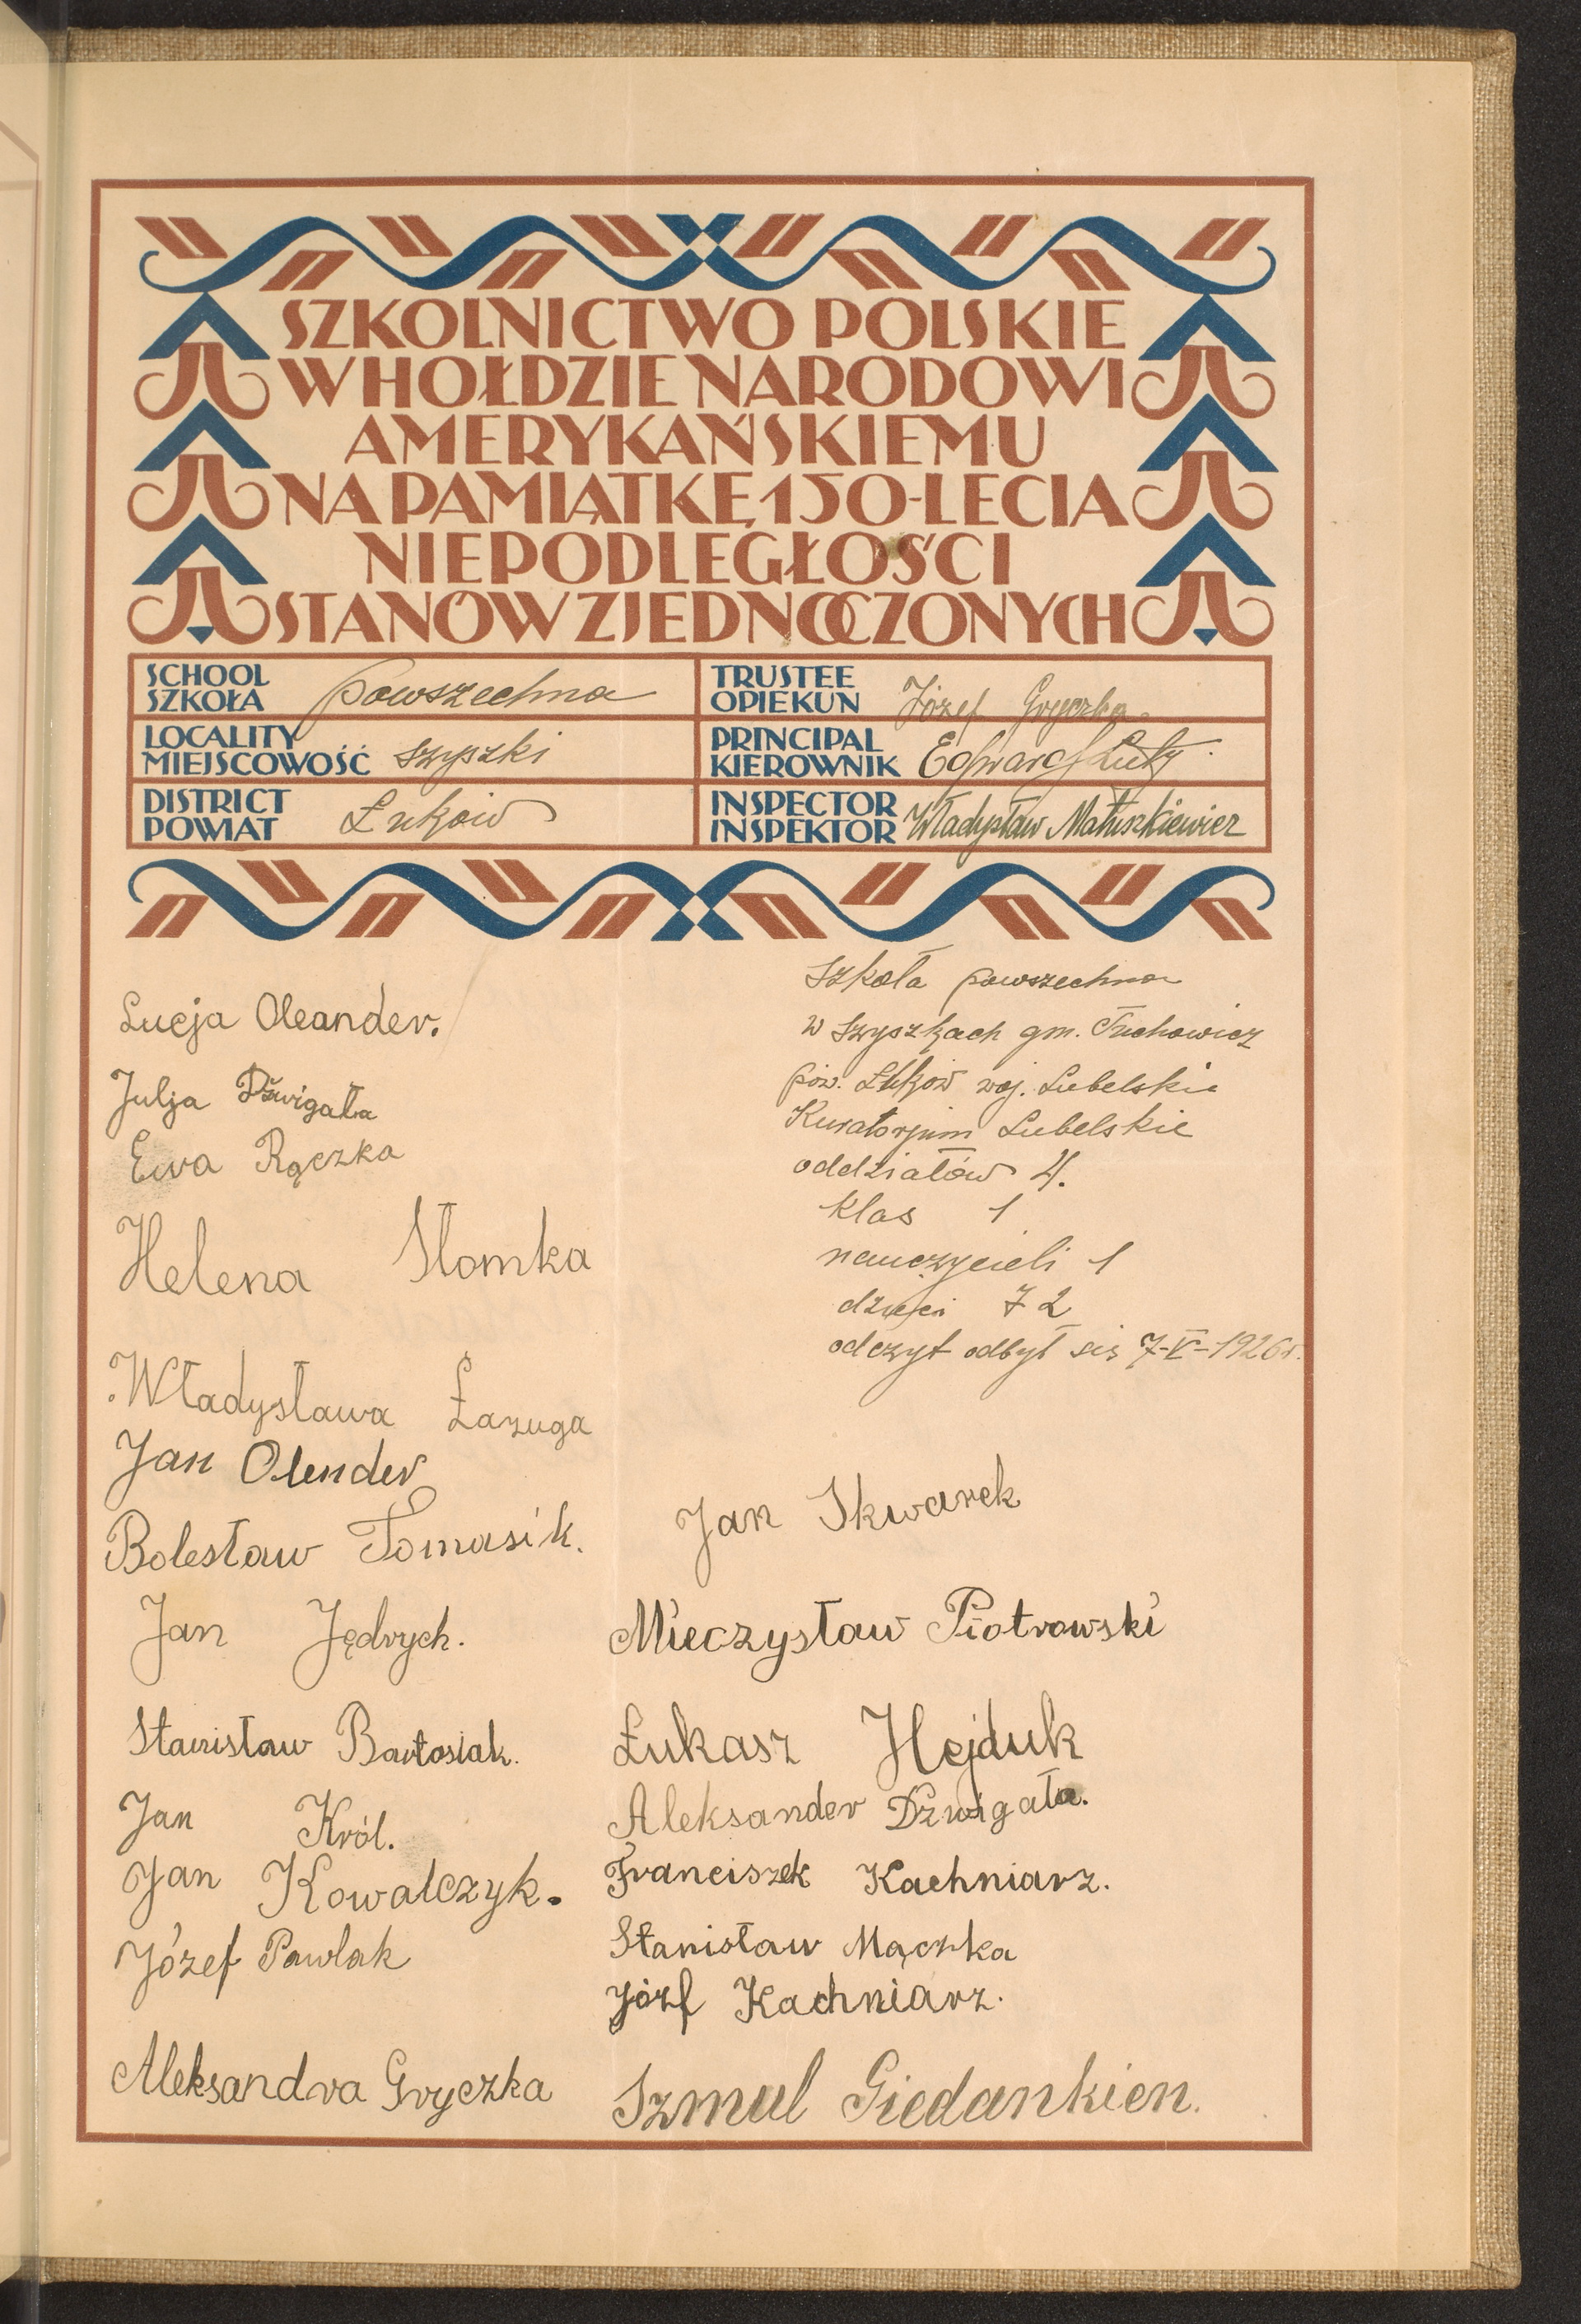 SZKOLNICTWO POLSKIE
W HOŁDZIE NARODOWI
AMERYKAŃSKIEMU
NA PAMIĄTKĘ 150-LECIA
NIEPODLEGŁOŚCI
STANÓW ZJEDNOCZONYCH
SCHOOL
SZKOŁA powszechna
TRUSTEE
OPIEKUN Józef Gryczka
LOCALITY
MIEJSCOWOŚĆ Szyszki
PRINCIPAL
KIEROWNIK Edward Lutz
DISTRICT
POWIAT Łuków
INSPECTOR
INSPEKTOR Władysław Matuszkiewicz
Szkoła powszechna
w Szyszkach gm. Tuchowicz
pow. Łuków woj. Lubelskie
Kuratorjum Lubelskie
oddziałów 4.
klas 1
nauczycieli 1
dzieci 72
odczyt odbył się 7-V-1926r.
Łucja Oleander.
Julja Dźwigała
Ewa Rączka
Helena Słomka
Władysława Łazuga
Jan Olender
Bolesław Tomasik.
Jan Jędrych.
Stanisław Bartosiak.
Jan Król.
Jan Kowalczyk.
Józef Pawlak
Aleksandra Gryczka
Jan Skwarek
Mieczysław Piotrowski
Łukasz Hejduk
Aleksander Dźwigała.
Franciszek Kachniarz.
Stanisław Mączka
Józf Kachniarz.
Szmul Giedankien.